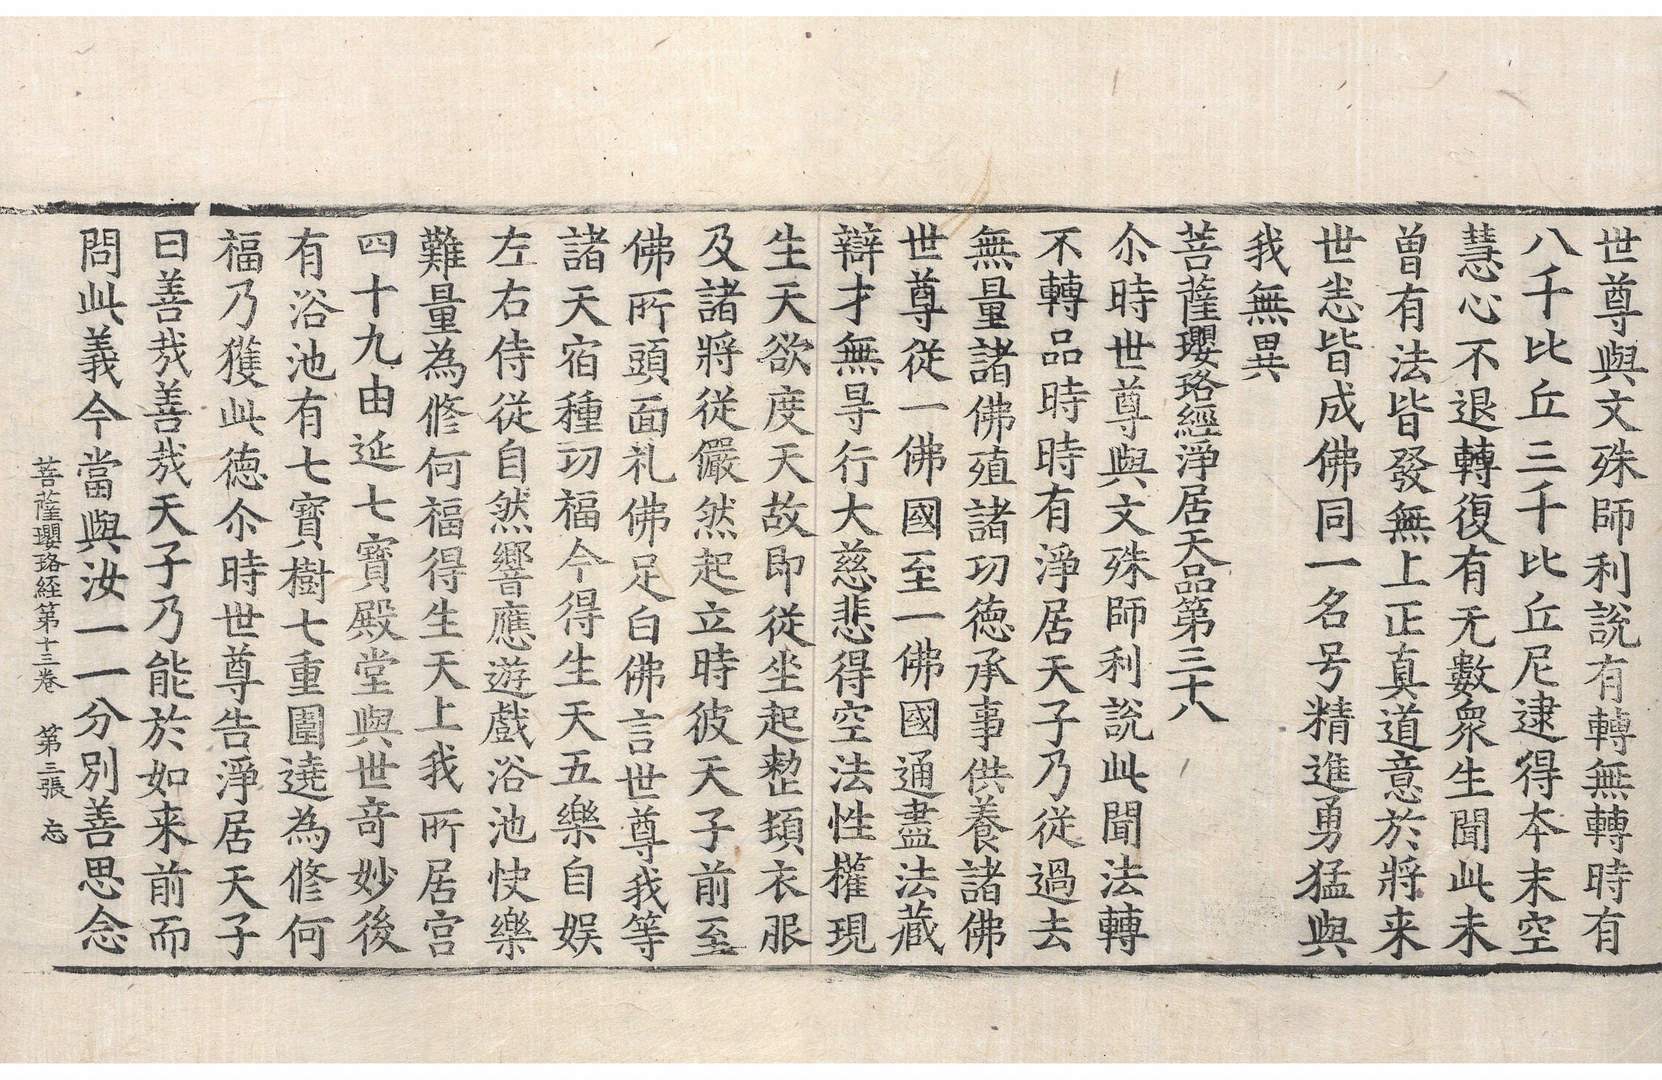 世尊與文殊師利說有轉無轉時有
八千比丘三千比丘尼逮得夲末空
慧心不退轉復有无數衆生聞此未
曽有法皆發無上正真道意於將来
世悉皆成佛同一名号精進勇猛與
我無異
菩薩瓔珞經淨居天品第三十八
尒時世尊與文殊師利說此聞法轉
不轉品時時有淨居天子乃從過去
無量諸佛殖諸功徳承事供養諸佛
世尊從一佛國至一佛國通盡法藏
辯才無㝵行大慈悲得空法性權現
生天欲度天故即從坐起整頓衣服
及諸將從儼然起立時彼天子前至
佛所頭面礼佛足白佛言世尊我等
諸天宿種功福今得生天五樂自娛
左右侍從自然響應遊戲浴池快樂
難量為修何福得生天上我所居宫
四十九由延七寶殿堂與世竒妙後
有浴池有七寶樹七重圍遶為修何
福乃獲此徳尒時世尊告淨居天子
曰善哉善哉天子乃能於如来前而
問此義今當與汝一一分别善思念
菩薩瓔珞経第十三卷 第三張 忘